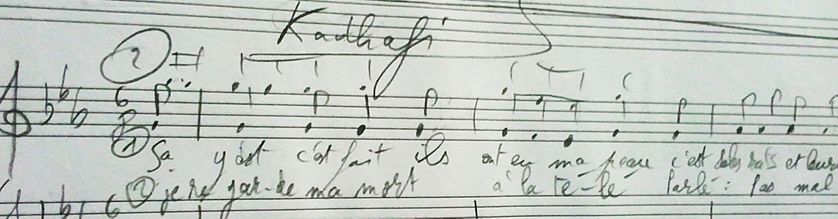 Kadhafi
2
6
8
① Sa y est c'est fait ils ont eu ma peau c'est des rats et leur
② je re gar-de ma mort à la té-lé parlé: pas mal
6